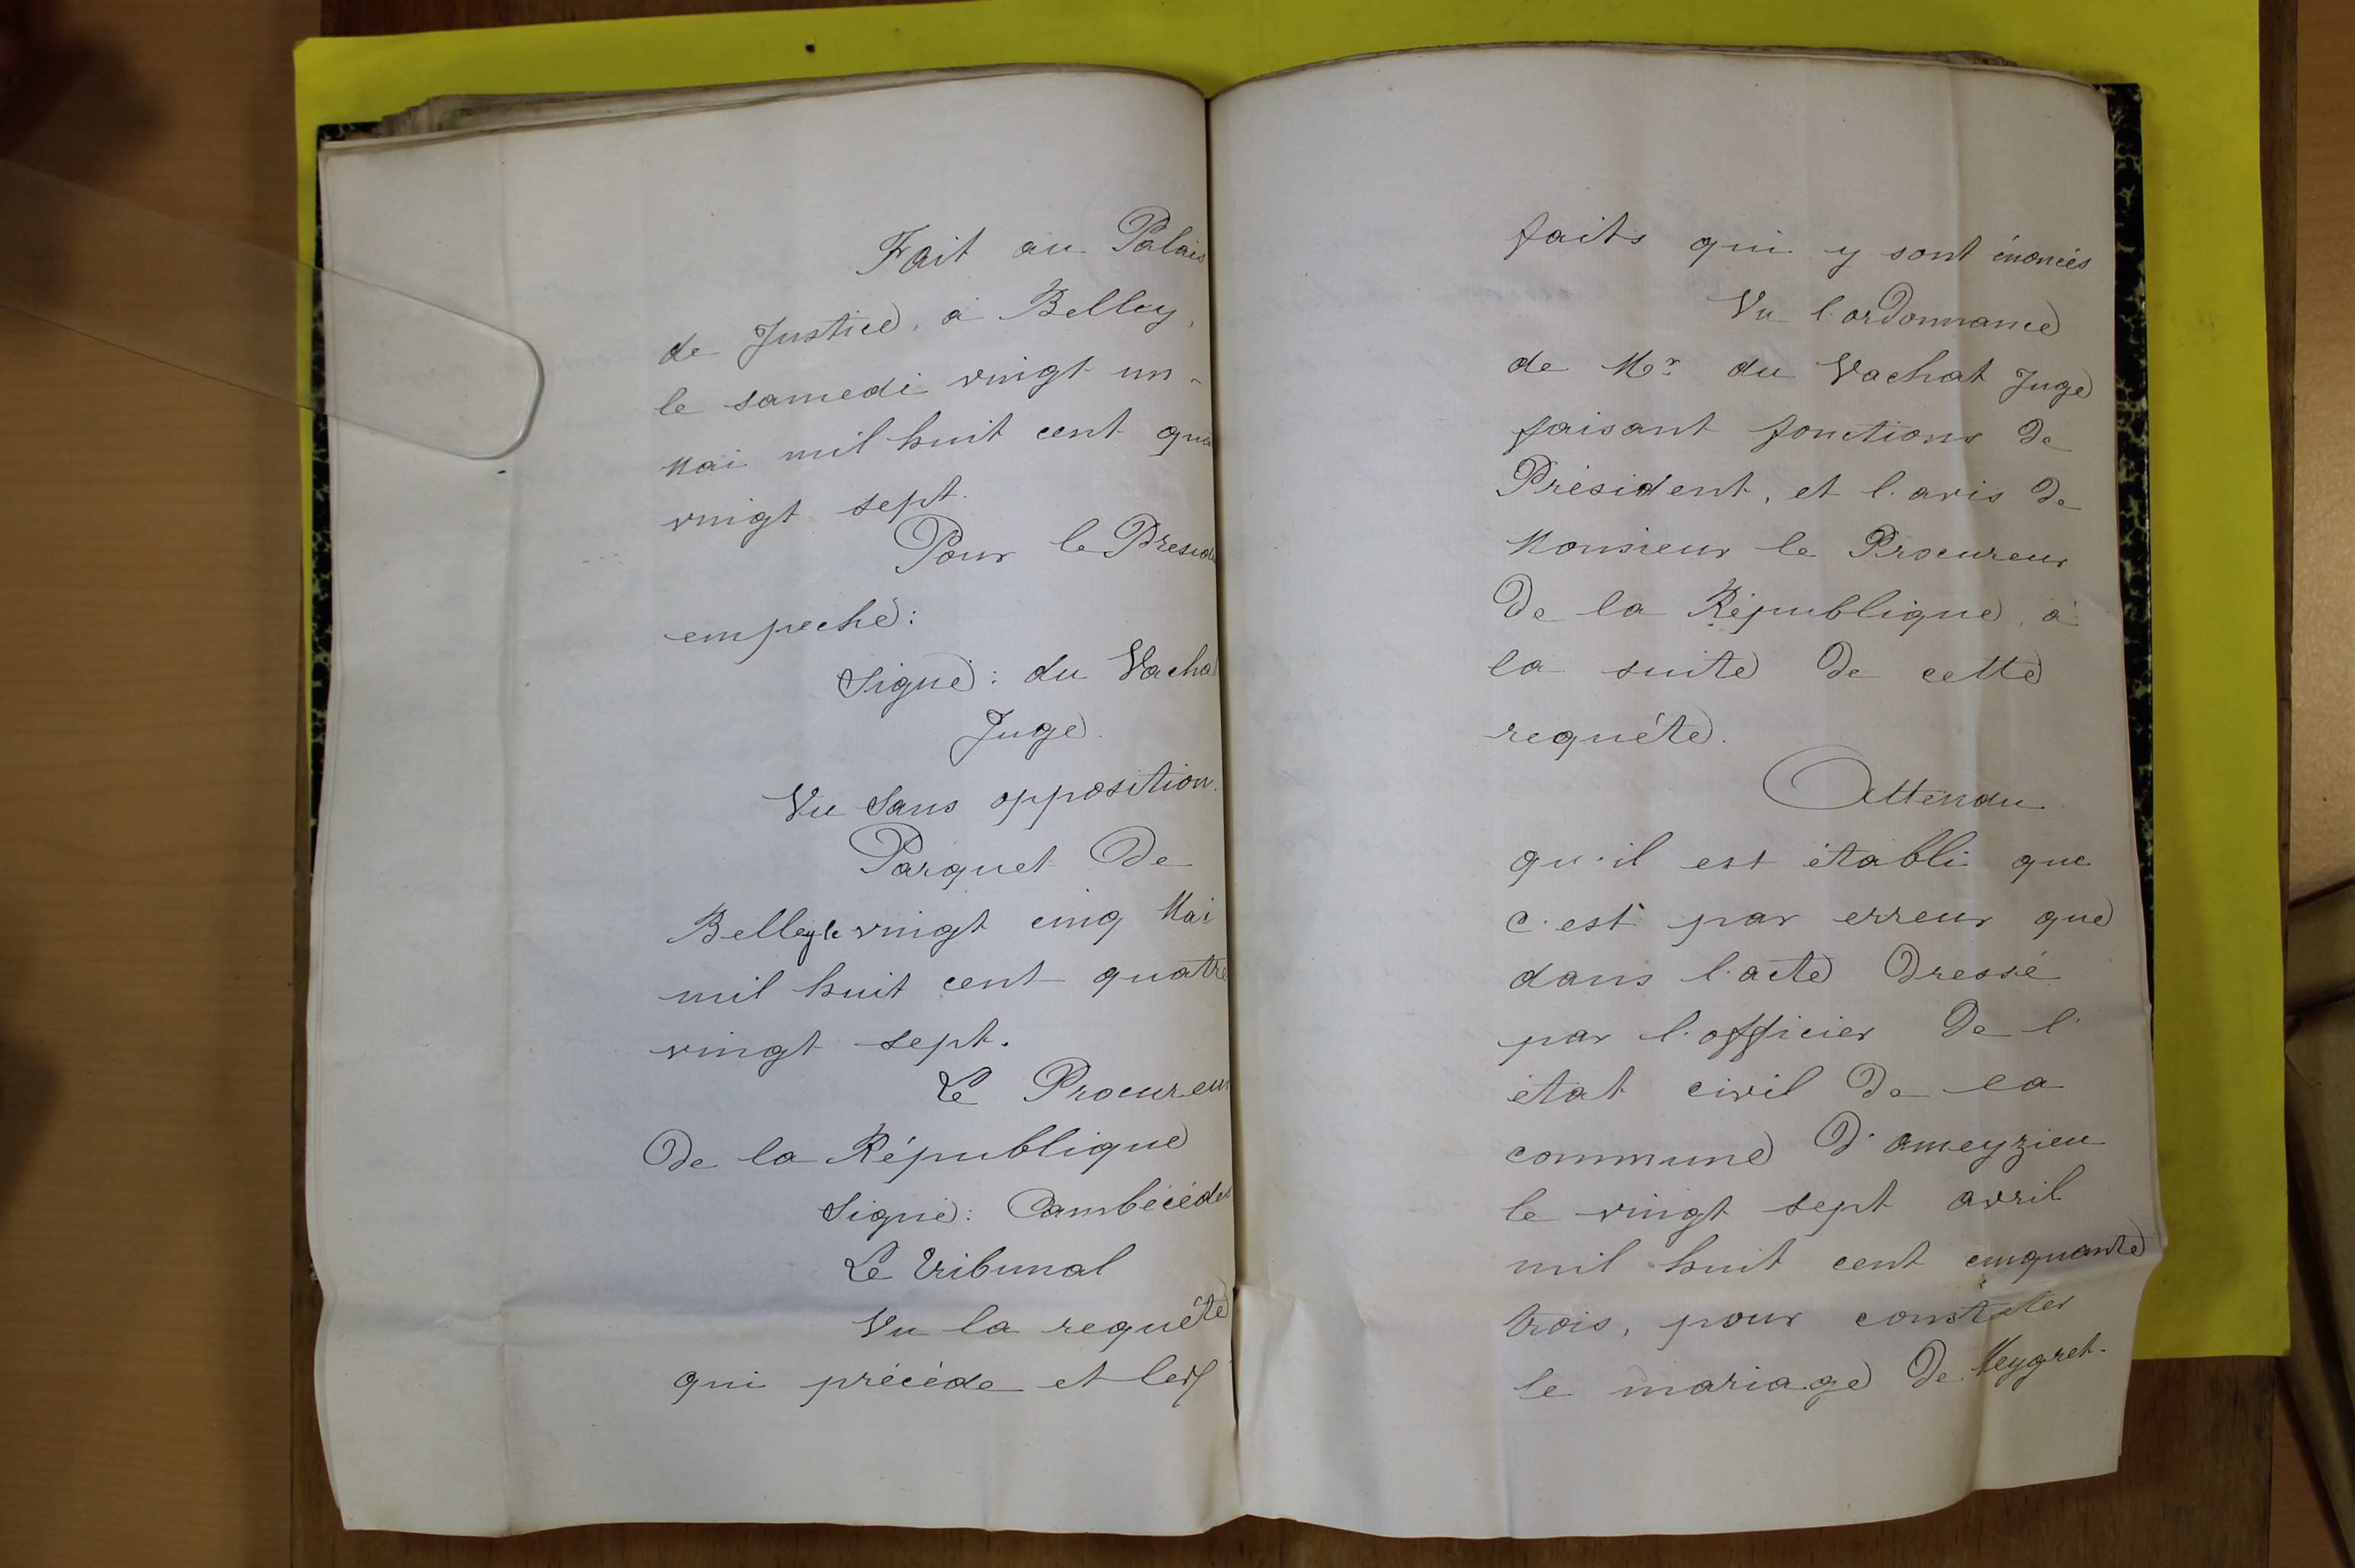 Fait au Palais
de Justice, à Belley,
le samedi vingt un
Mai mil huit cent qua
vingt sept.
Pour le Présid
empeché:
Signé: du Vacha
Juge.
Vu sans opposition.
Parquet De
Belley le vingt cinq Mai
mil huit cent quatre
vingt sept.
Le Procureur
De la République
Signé:
Le Tribunal
Vu la requête
qui précéde et les
faits qui y sont énoncés
Vu l'ordonnance
de Mr du Vachat Juge
faisant fonctions de
Président, et l'avis de
Monsieur le Procureur
De la République, à
la suite De cette
requête.
Attendu
qu'il est établi que
c'est par erreur que
dans l'acte Dressé
par l'officier De l'
état civil De la
commune D'ameyzieu
le vingt sept avril
mil huit cent cinquante
trois, pour constater
le mariage De Meygret-